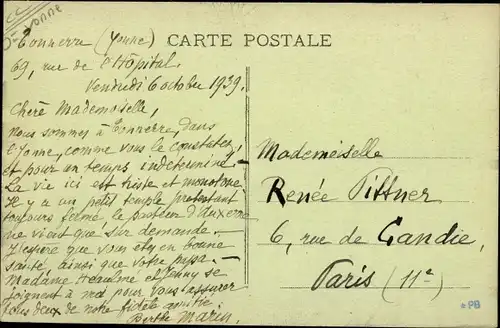 Yonne
Tonnerre (Yonne)
CARTE POSTALE
69, rue de l'Hôpital.
Vendredi 6 october 1939.
Chère Mademoiselle,
Nous sommes à Tonnerre, dans
l'Yonne, comme vous le constatez,
et pour un temps indeterminé!
La vie ici est triste et monotone.
Il y a un petit temple protestant
toujours fermé, le pasteur d'Auxerre
ne vient que sur demande.
J'espère que vous êtes en bonne
santé ainsi que votre papa.
Madame Heaulmé et Jenny se
joignent à moi pour vous assurer
tous deux de notre fidèle amitié.
Berthe Marin
Mademoiselle
Renée Pittner
6, rue de Candie,
Paris (11e)
*PB